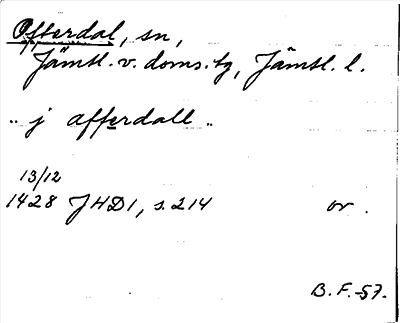 Offerdal, sn,
Jämtl. v. doms. tg, Jämtl. l.
.. j afferdall ..
13/12
1428 JHD1, s. 214 or.
B. F. -57.